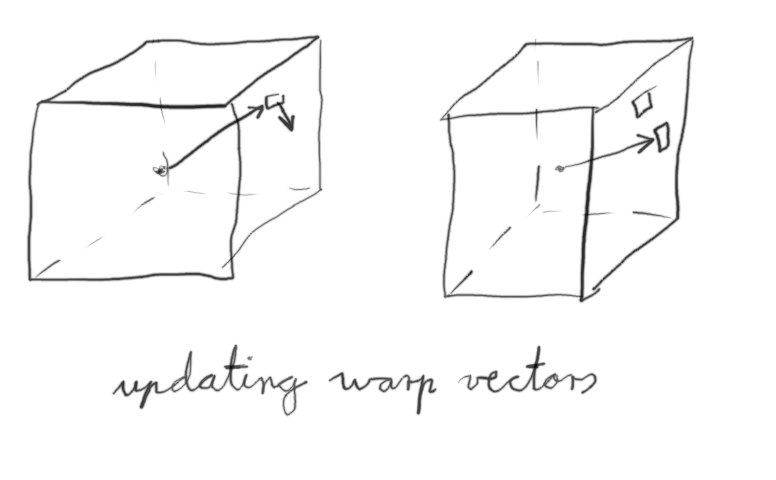 updating warp vectors